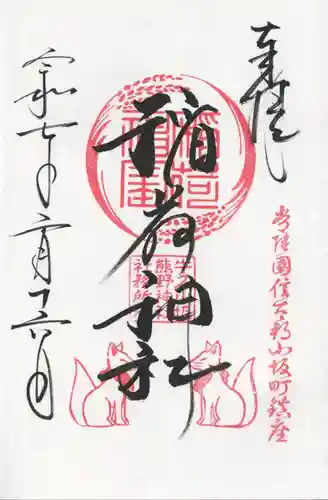 奉拝
常陸國信太郡小坂町鎮座
稲荷神社
稲荷
熊野神社
社務所
令和七年二月十六日